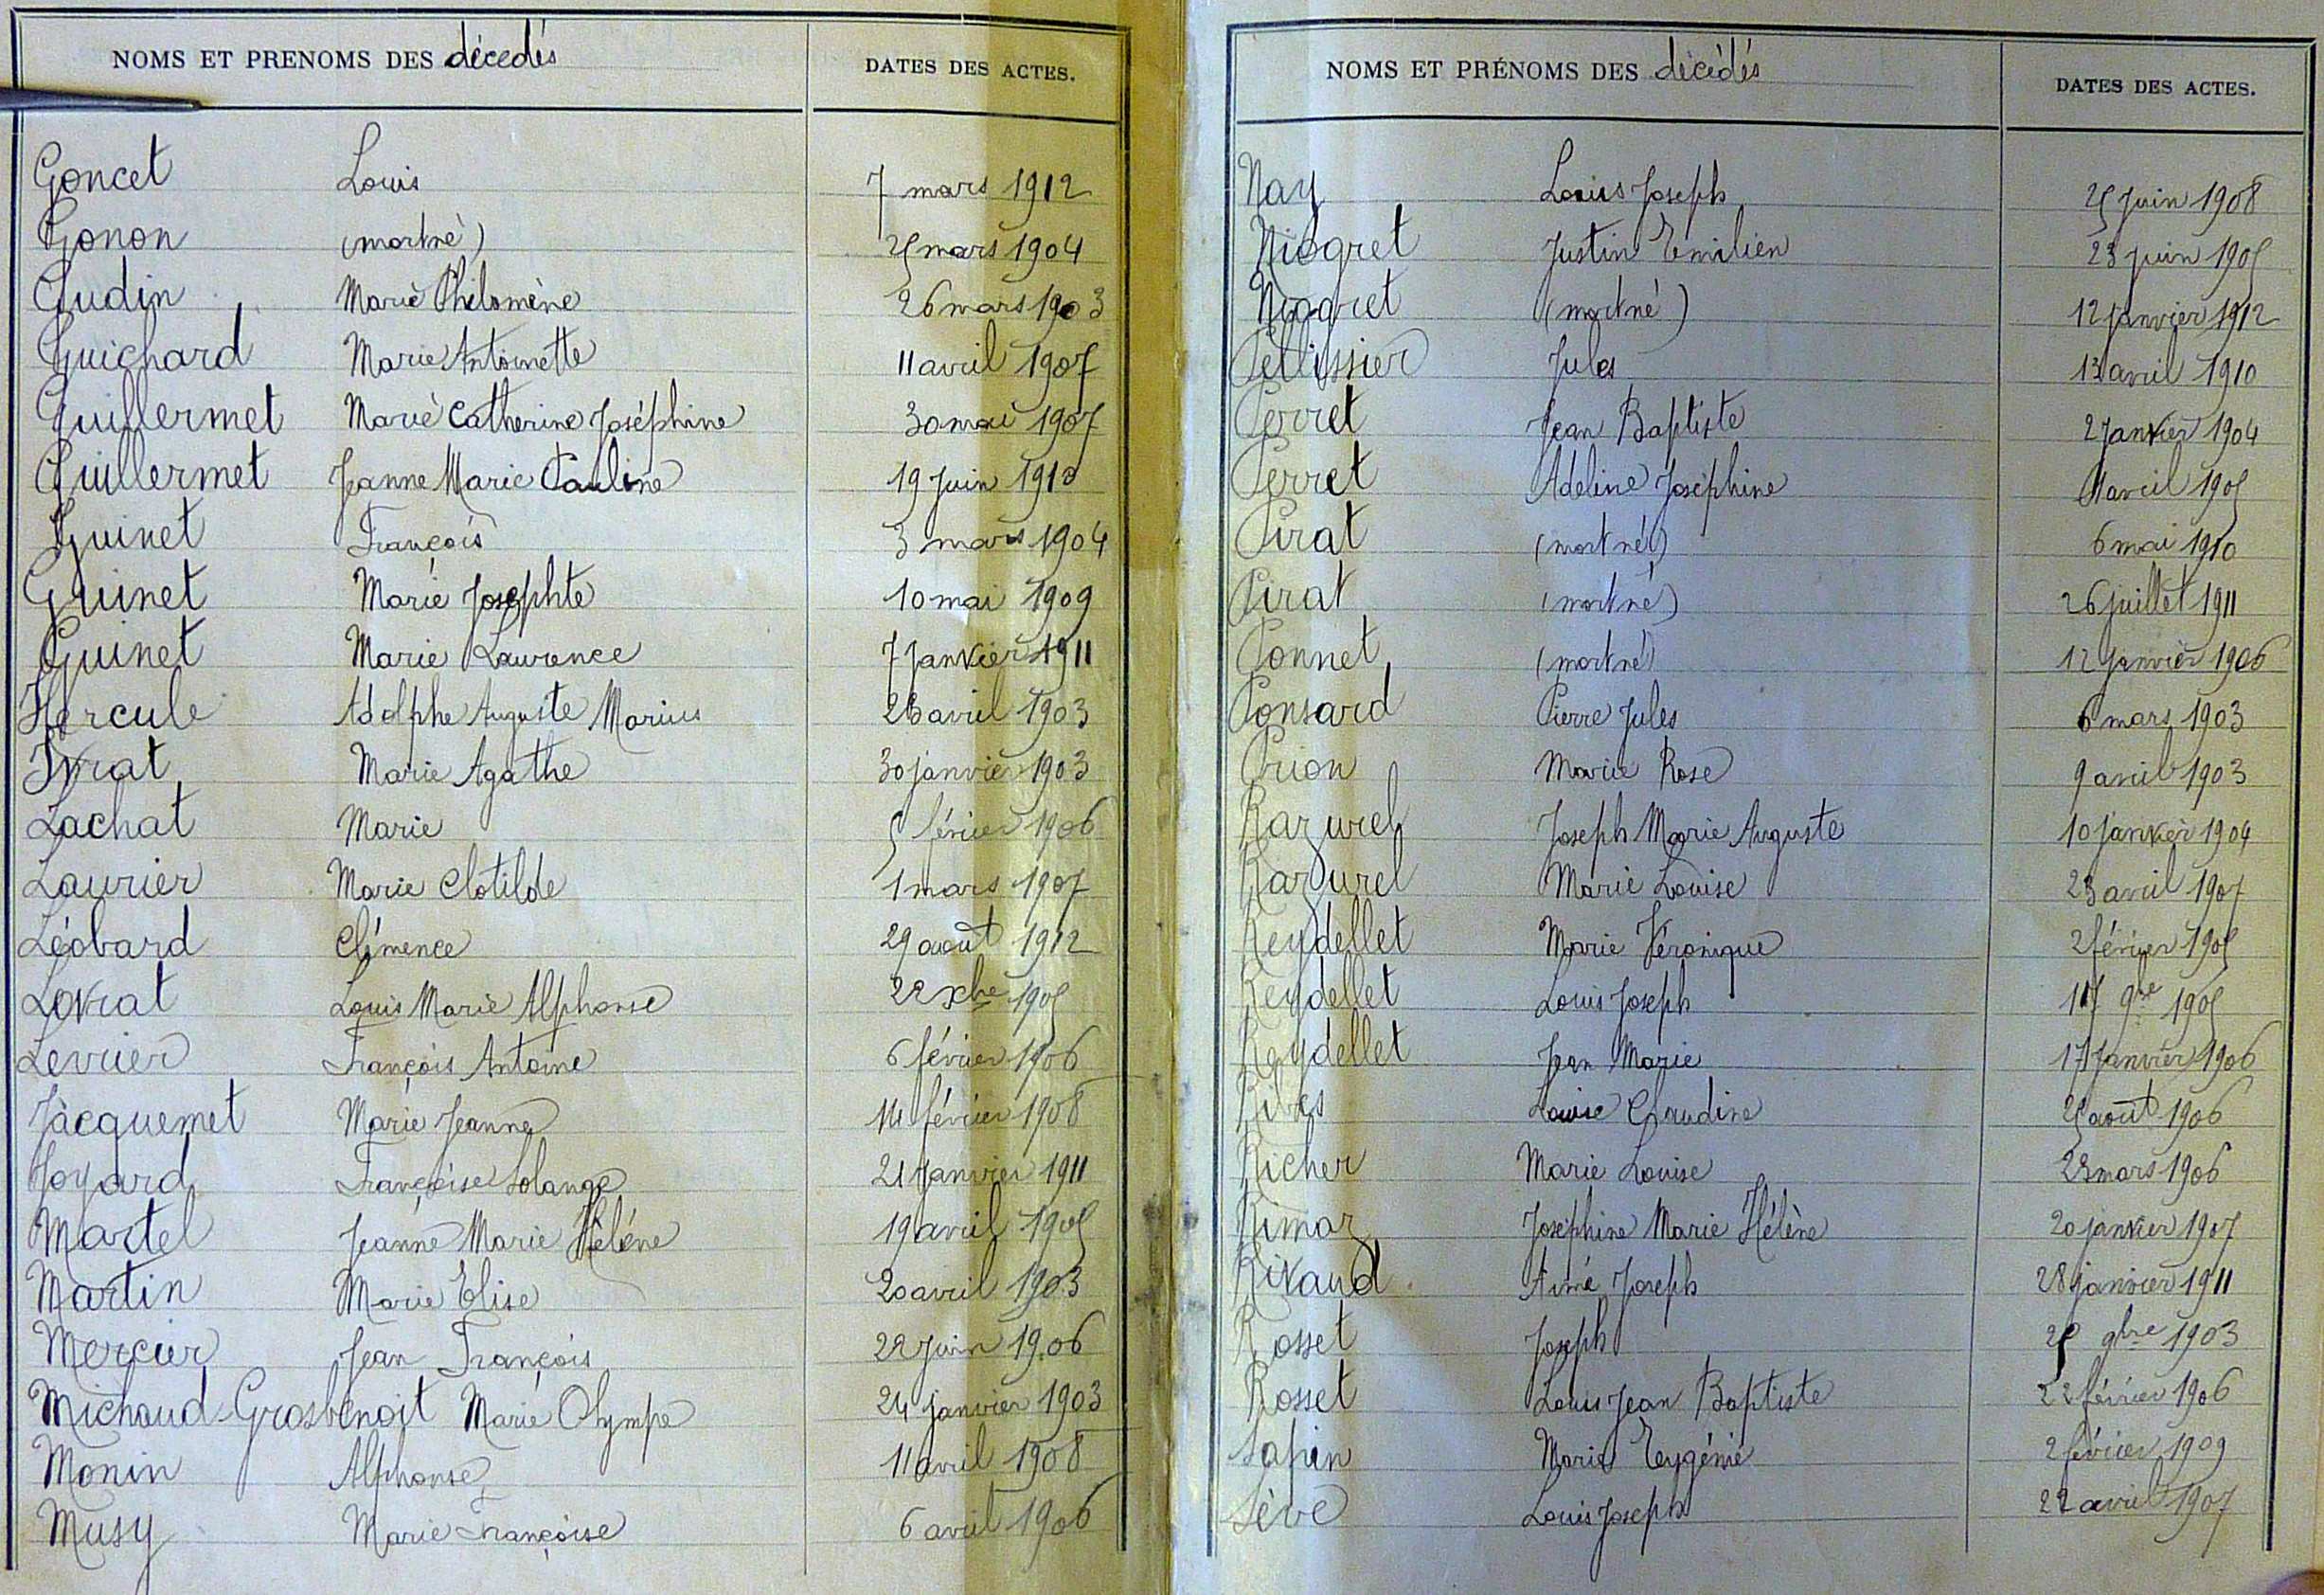 NOMS ET PRENOMS DES décedés DATES DES ACTES.
Goncet Louis 7 mars 1912
Gonon (mortné) 25 mars 1904
Gudin Marie Philomène 26 mars 1903
Guichard Marie Antoinette 11 avril 1907
Guillermet Marie Catherine Joséphine 30 mai 1907
Guillermet Jeanne Marie Pauline 19 Juin 1910
Guinet François 3 mars 1904
Guinet Marie Josephte 10 mai 1909
Guinet Marie Laurence 7 Janvier 1911
Hercule Adolphe Auguste Marius 26 avril 1903
Ivrat Marie Agathe 30 janvier 1903
Lachat Marie 5 février 1906
Laurier Marie Clotilde 1 mars 1907
Léobard Clémence 29 aout 1912
Lovrat Louis Marie Alphonse 22 xbre 1905
Levrier François Antoine 6 février 1906
Jacquemet Marie Jeanne 14 février 1908
Joyard Françoise Solange 21 Janvier 1911
Martel Jeanne Marie Hélène 19 avril 1905
Martin Marie Elise 20 avril 1903
Mercier Jean François 22 Juin 1906
Michaud-Grosbenoit Marie Olympe 24 janvier 1903
Monin Alphonse 11 avril 1908
Musy Marie Françoise 6 avril 1906
NOMS ET PRÉNOMS DES décédés DATES DES ACTES.
Nay Louis Joseph 25 Juin 1908
Niogret Justin Emilien 23 juin 1905
Niogret (mortné) 12 Janvier 1912
Pellissier Jules 13 avril 1910
Perret Jean Baptiste 2 Janvier 1904
Perret Adeline Joséphine avril 1905
Pirat (mortné) 6 mai 1910
Pirat (mortné) 26 juillet 1911
Ponnet (mortné) 12 Janvier 1906
Ponsard Pierre Jules 6 mars 1903
Prion Marie Rose 9 avril 1903
Razurel Joseph Marie Auguste 10 janvier 1904
Razurel Marie Louise 23 avril 1907
Reydellet Marie Véronique 2 février 1905
Reydellet Louis Joseph 9bre 1905
Reydellet Jean Marie 17 Janvier 1906
Ribes Louise Claudine 25 août 1906
Richer Marie Louise 23 mars 1906
Rimaz Joséphine Marie Hélène 20 janvier 1907
Rivaud Aimé Joseph 28 janvier 1911
Rosset Joseph 25 9bre 1903
Rosset Louis Jean Baptiste 22 février 1906
Sapin Marie Eugénie 2 février 1909
Sève Louis Joseph 22 avril 1907